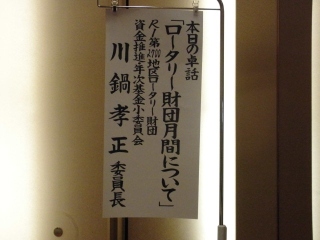 本日の卓話
「ロータリー財団月間について」
RI第2700地区ロータリー財団
資金推進・年次基金小委員会
川鍋孝正 委員長